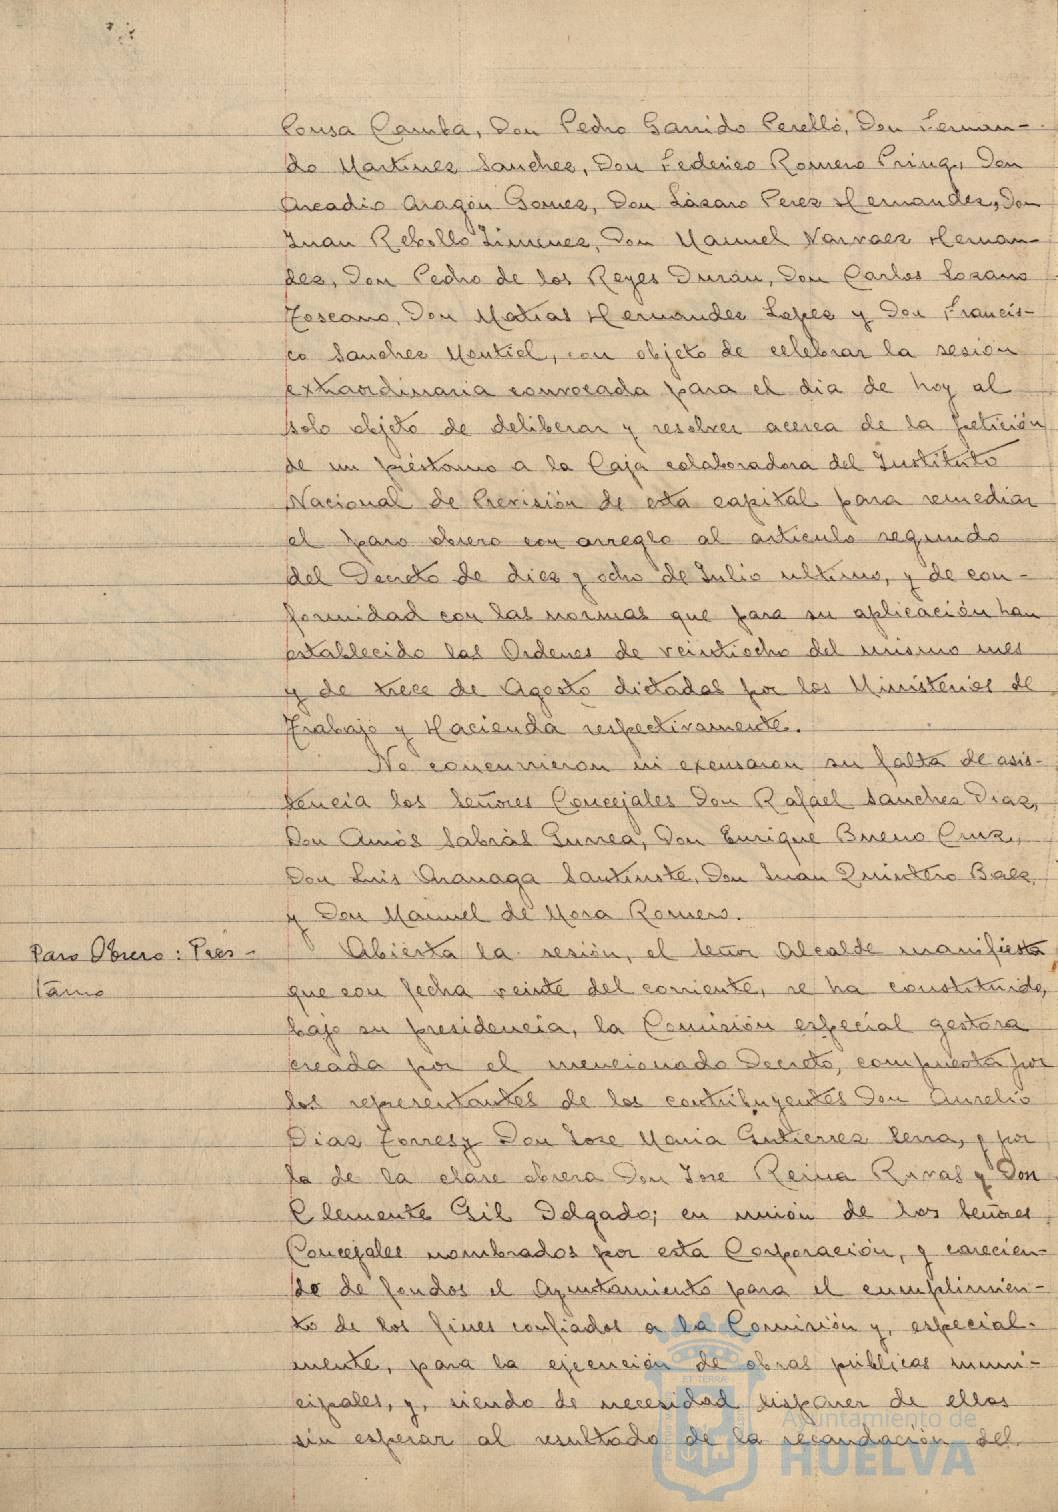 Pousa Camba, Don Pedro Garrido Perelló, Don Fernan-
do Martinez Sanchez, Don Federico Romero Pring, Don
Arcadio Aragón Gomez, Don Lázaro Perez Hernandez, Don
Juan Rebollo Jimenez, Don Manuel Narvaez Hernan-
dez, Don Pedro de los Reyes Durán, Don Carlos Lozano
Toscano, Don Matias Hernandez Lopez y Don Francis-
co Sanchez Montiel, con objeto de celebrar la sesión
extraordinaria convocada para el dia de hoy al
solo objeto de deliberar y resolver acerca de la petición
de un préstamo a la Caja colaboradora del Instituto
Nacional de Previsión de esta capital para remediar
el paro obrero con arreglo al articulo segundo
del Decreto de diez y ocho de Julio ultimo, y de con-
formidad con las normas que para su aplicación han
establecido las Ordenes de veintiocho del mismo mes
y de trece de Agosto dictadas por los Ministerios de
Trabajo y Hacienda respectivamente.
No concurrieron ni excusaron su falta de asis-
tencia los Señores Concejales Don Rafael Sanchez Diaz,
Don Amós Sabrás Gurrea, Don Enrique Bueno Cruz,
Don Luis Aranaga Santiuste, Don Juan Quintero Baez
y Don Manuel de Mora Romero.
Paro Obrero: Prés-
tamo
Abierta la sesión, el Señor Alcalde manifiesta
que con fecha veinte del corriente, se ha constituido,
bajo su presidencia, la Comisión especial gestora
creada por el mencionado Decreto, compuesta por
los representantes de los contribuyentes Don Aurelio
Diaz Torres y Don Jose Maria Gutierrez Serra, y por
la de la clase obrera Don Jose Reina Rivas y Don
Clemente Gil Delgado; en unión de los Señores
Concejales nombrados por esta Corporación, y carecien-
do de fondos el Ayuntamiento para el cumplimien-
to de los fines confiados a la Comisión y, especial-
mente, para la ejecución de obras públicas muni-
cipales, y, siendo de necesidad disponer de ellos
sin esperar al resultado de la recaudación del
Ayuntamiento de
HUELVA